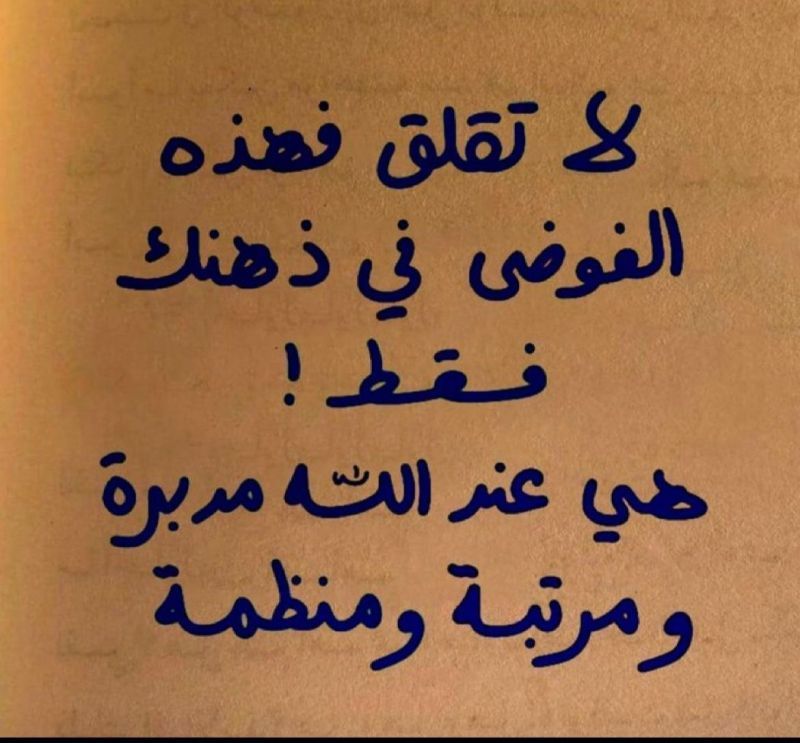 لا تقلق فهذه
الفوضى في ذهنك
فقط !
هي عند الله مدبرة
ومرتبة ومنظمة